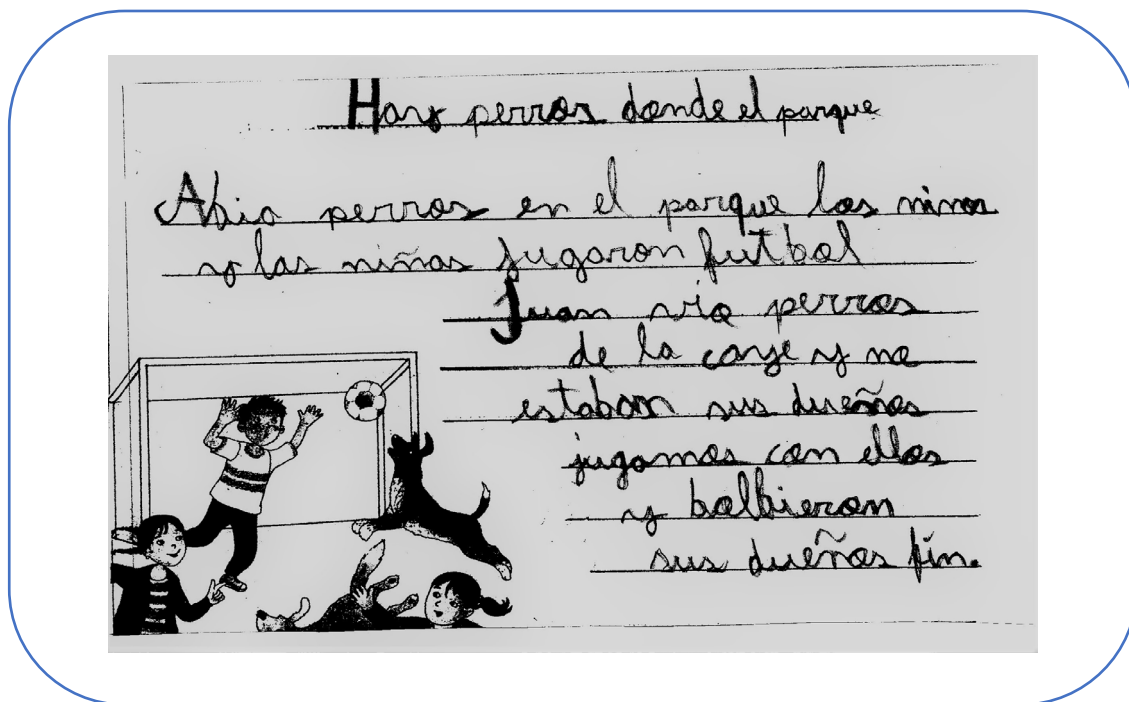 Hay perros donde el parque
Abia perros en el parque los ninos
y las niñas jugaron futbol
Juan vio perros
de la caye y no
estaban sus dueños
jugamos con ellos
y bolbieron
sus dueños fin.